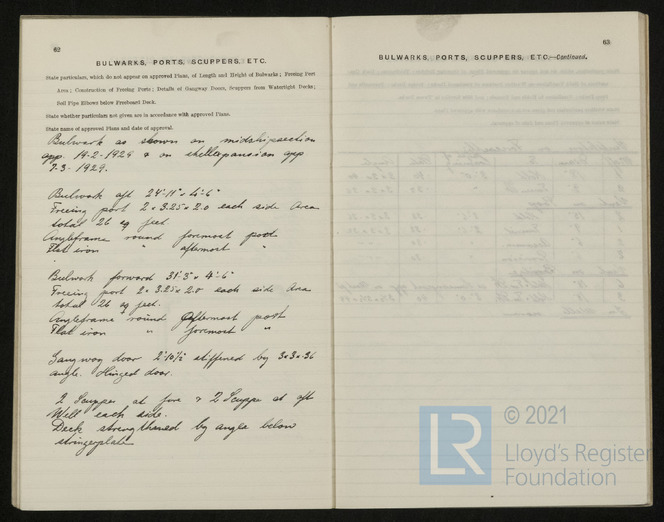 62
BULWARKS, PORTS, SCUPPERS, ETC.
State particulars, which do not appear on approved Plans, of Length and Height of Bulwarks; Freeing Port
Area; Construction of Freeing Ports; Details of Gangway Doors, Scuppers from Watertight Decks;
Soil Pipe Elbows below Freeboard Deck.
State whether particulars not given are in accordance with approved Plans.
State name of approved Plans and date of approval.
Bulwark as shown on midshipsection
app. 14-2-1929 & on shellexpansion app
7-3-1929.
Bulwark aft 24'-11" x 4'-6"
Freeing port 2 x 3.25 x 2.0 each side Area
total 26 sq feet.
Angleframe round foremost post
Flat iron " aftermost "
Bulwark forward 31'-3" x 4'-6"
Freeing port 2 x 3.25 x 2.0 each side Area
total 26 sq feet.
Angleframe round aftermost post
Flat iron " foremost "
Gangway door 2'-10½ stiffened by 3x3x.36
angle. Hinged door.
2 Scupper at fore & 2 Scupper at aft
Well each side.
Deck strengthened by angle below
stringerplate
63
BULWARKS, PORTS, SCUPPERS, ETC.—Continued.
LR
© 2021
Lloyd's Register
Foundation